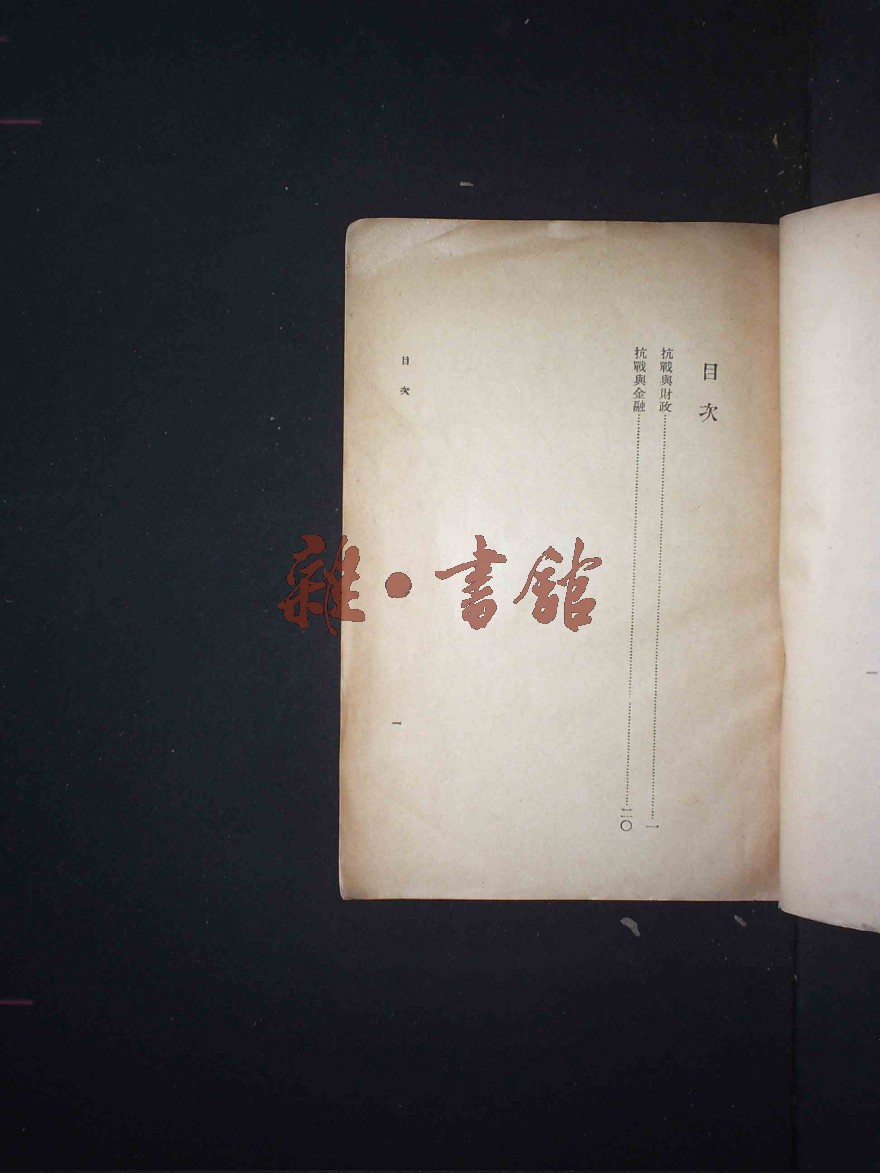 目次
抗戰與財政……一
抗戰與金融……二〇
目次
一
雜·書館
一